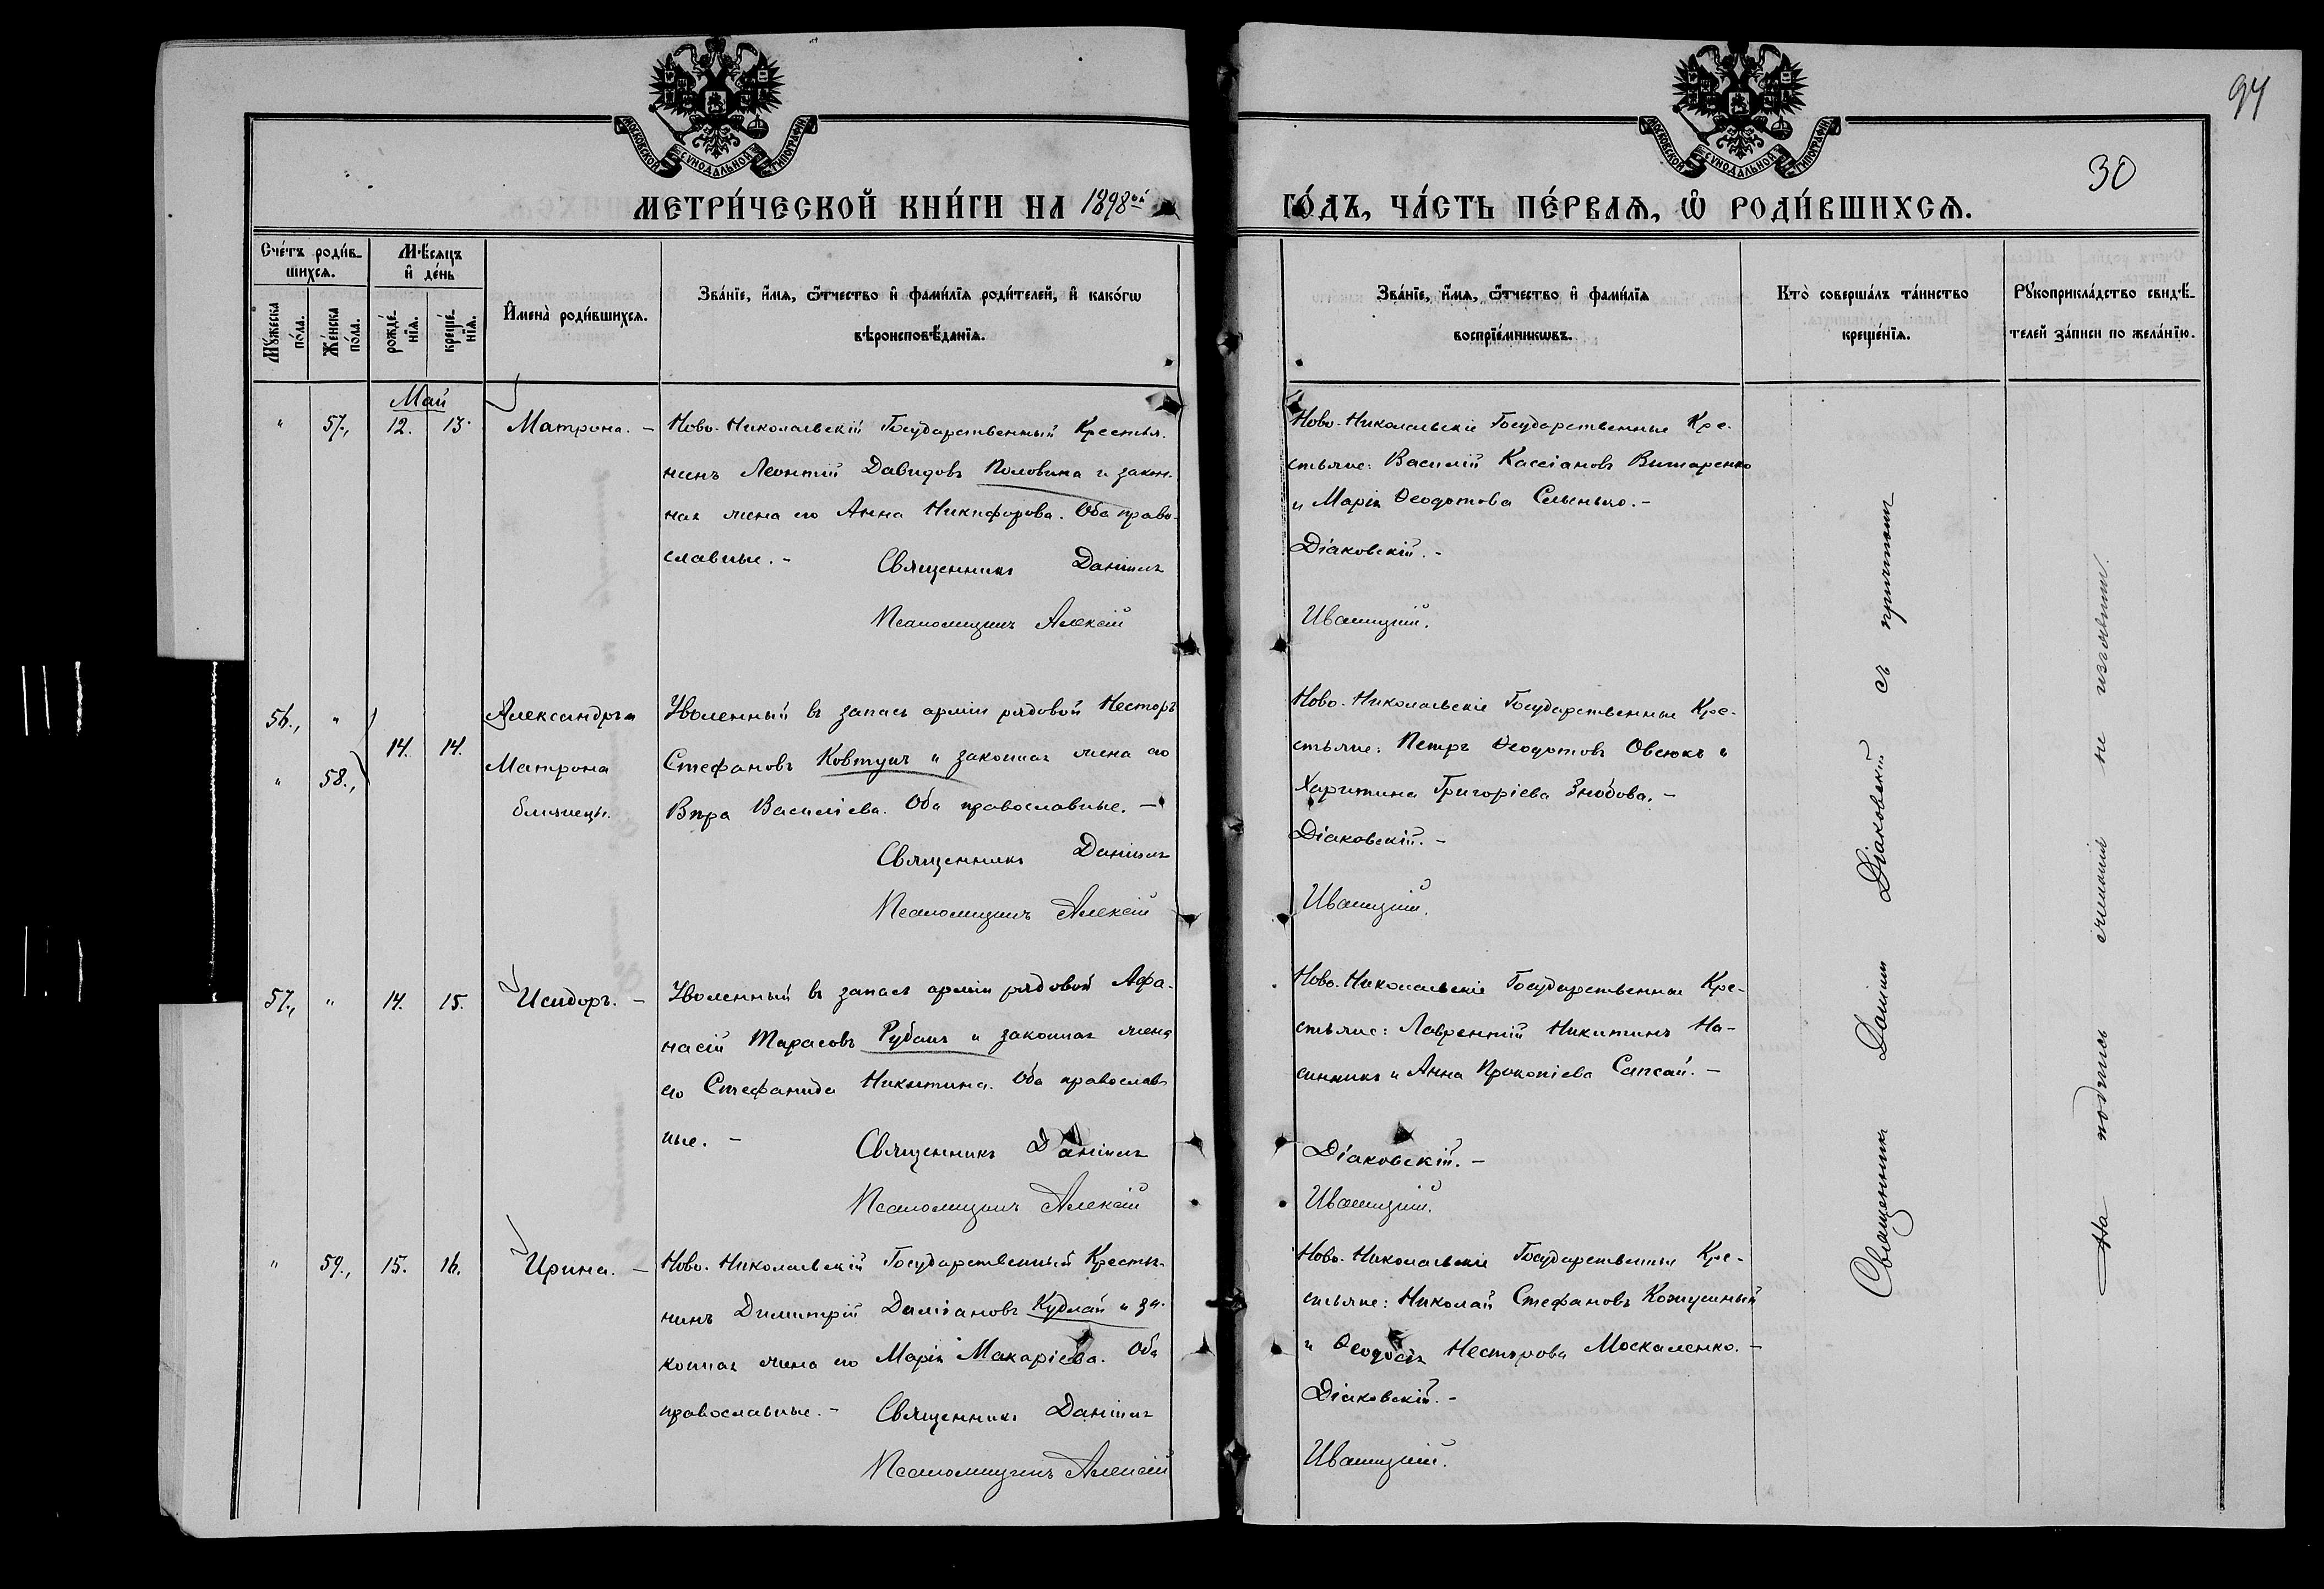 94
30
МОСКОВСКОЙ СУНОДАЛЬНОЙ ТИПОГРАФІИ
МОСКОВСКОЙ СУНОДАЛЬНОЙ ТИПОГРАФІИ
МЕТРИ́ЧЕСКОЙ КНИ́ГИ НА 1898ой
ГО́ДЪ, ЧА́СТЬ ПЕ́РВАѦ, Ѡ҆ РОДИ́ВШИХСѦ.
Сче́тъ роди́вшихсѧ.
Мꙋ́жеска по́ла.
Же́нска по́ла.
Мѣ́сѧцъ и҆ де́нь
рожде́нїѧ.
креще́нїѧ.
И҆мена̀ роди́вшихсѧ.
Зва́нїе, и҆́мѧ, ѻ҆́тчество и҆ фами́лїѧ роди́телей, и҆ како́гѡ
вѣроисповѣ́данїѧ.
Зва́нїе, и҆́мѧ, ѻ҆́тчество и҆ фами́лїѧ
воспрїе́мникѡвъ.
Кто̀ соверша́лъ та́инство
креще́нїѧ.
Рꙋкоприкла́дство свидѣ́-
телей за́писи по жела́нїю.
Май
" 57., 12. 13. Матрона. –
Ново-Николаевскій Государственный Крестья-
нинъ Леонтій Давидовъ Половина и закон-
ная жена его Анна Никифорова. Оба право-
славные. –
Священникъ Даніилъ
Псаломщикъ Алексій
Ново-Николаевскіе Государственные Кре-
стьяне: Василій Кассіановъ Витаренко
и Марія Ѳеодотова –
Діаковскій. –
Иваницкій.
56., "
" 58.,
14. 14.
Александръ и
Матрона
близнецы.
Уволенный въ запасъ арміи рядовой Несторъ
Стефановъ Ковтунъ и законная жена его
Вѣра Василіева. Оба православные. –
Священникъ Даніилъ
Псаломщикъ Алексій
Ново-Николаевскіе Государственные Кре-
стьяне: Петръ Ѳеодотовъ Овсюкъ и
Харитина Григоріева Знобова. –
Діаковскій. –
Иваницкій.
57., " 14. 15. Исидоръ. –
Уволенный въ запасъ арміи рядовой Афа-
насій Тарасовъ Рубанъ и законная жена
его Стефанида Никитина. Оба православ
ные. –
Священникъ Даніилъ
Псаломщикъ Алексій
Ново-Николаевскіе Государственные Кре-
стьяне: Лаврентій Никитинъ На-
синникъ и Анна Прокопіева Сапсай. –
Діаковскій. –
Иваницкій.
" 59., 15. 16. Ирина. –
Ново-Николаевскій Государственный Крестья-
нинъ Димитрій Даміановъ Кудлай и за-
конная жена его Марія Макаріева. Оба
православные. –
Священникъ Даніилъ
Псаломщикъ Алексій
Ново-Николаевскіе Государственные Кре-
стьяне: Николай Стефановъ Кожушный
и Ѳеодосія Несторова Москаленко. –
Діаковскій. –
Иваницкій.
Священникъ Даніилъ Діаковскій съ причтомъ
На подпись желанія не изъявили.